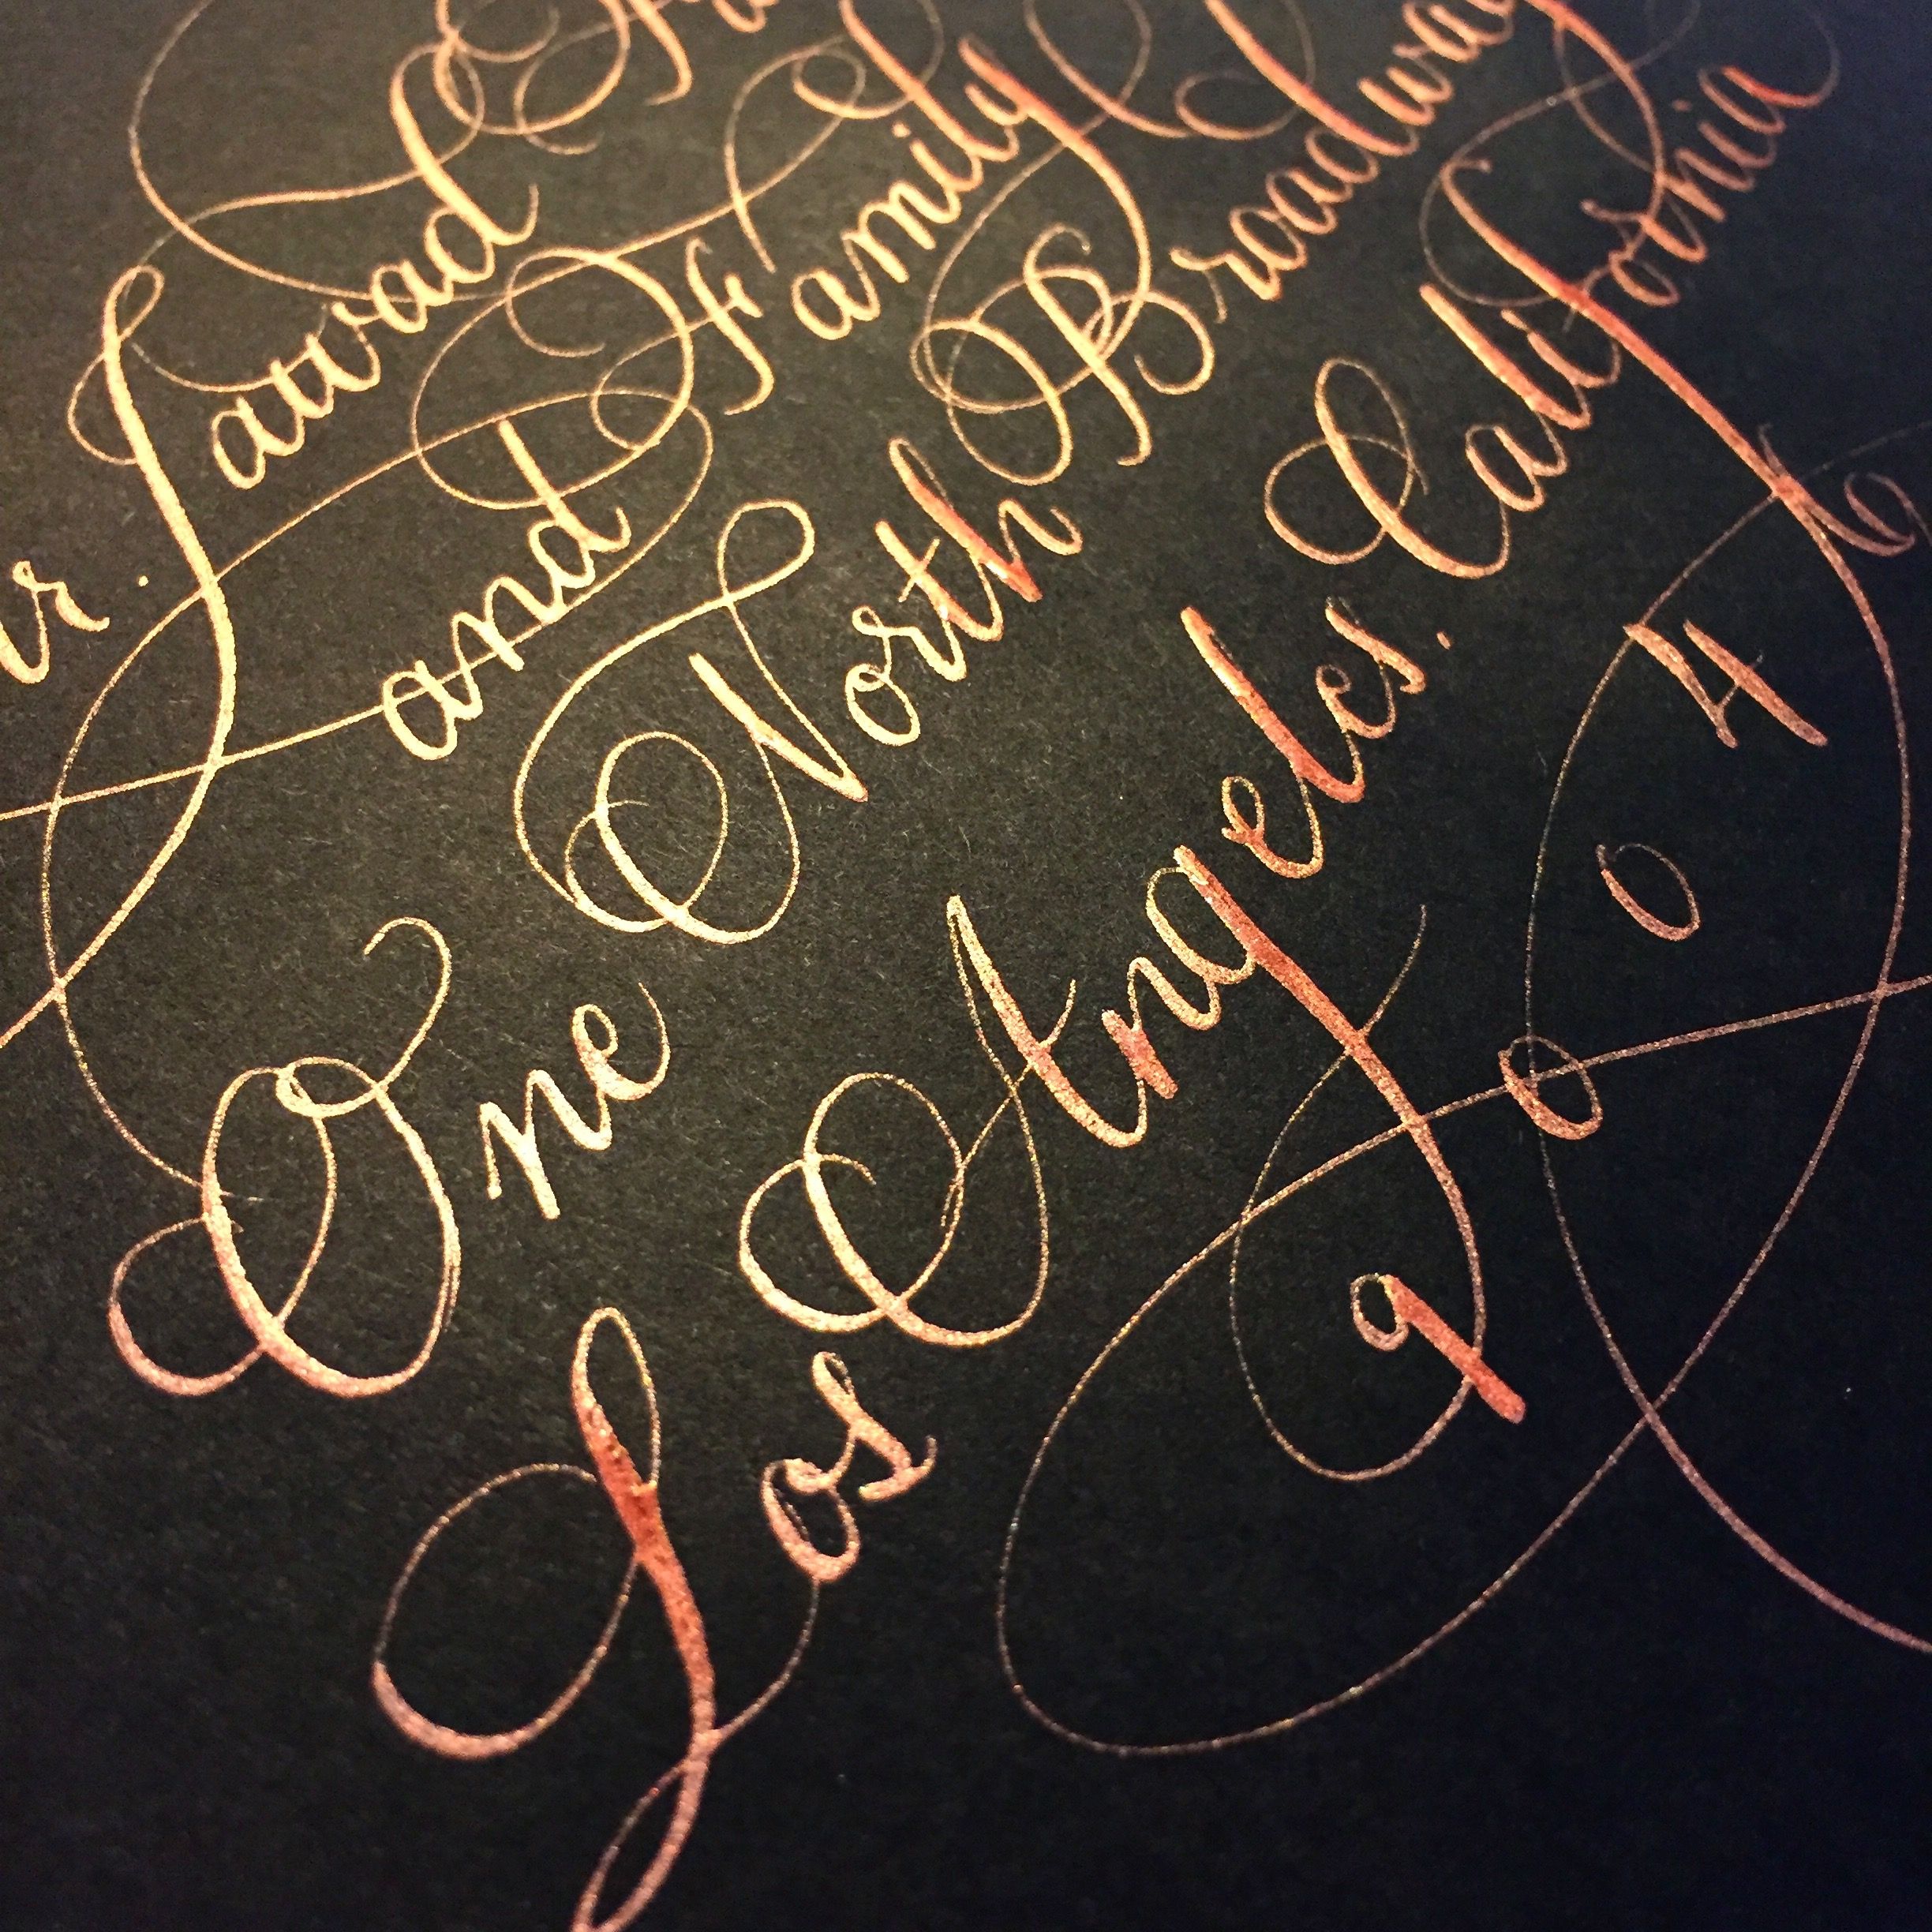 Mr. Jawad
and Family
One North Broadway
Los Angeles. California
9 0 0 4 6